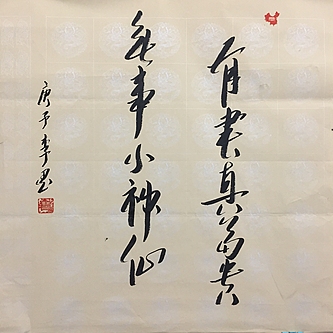 有书真富贵
无事小神仙
庚子李